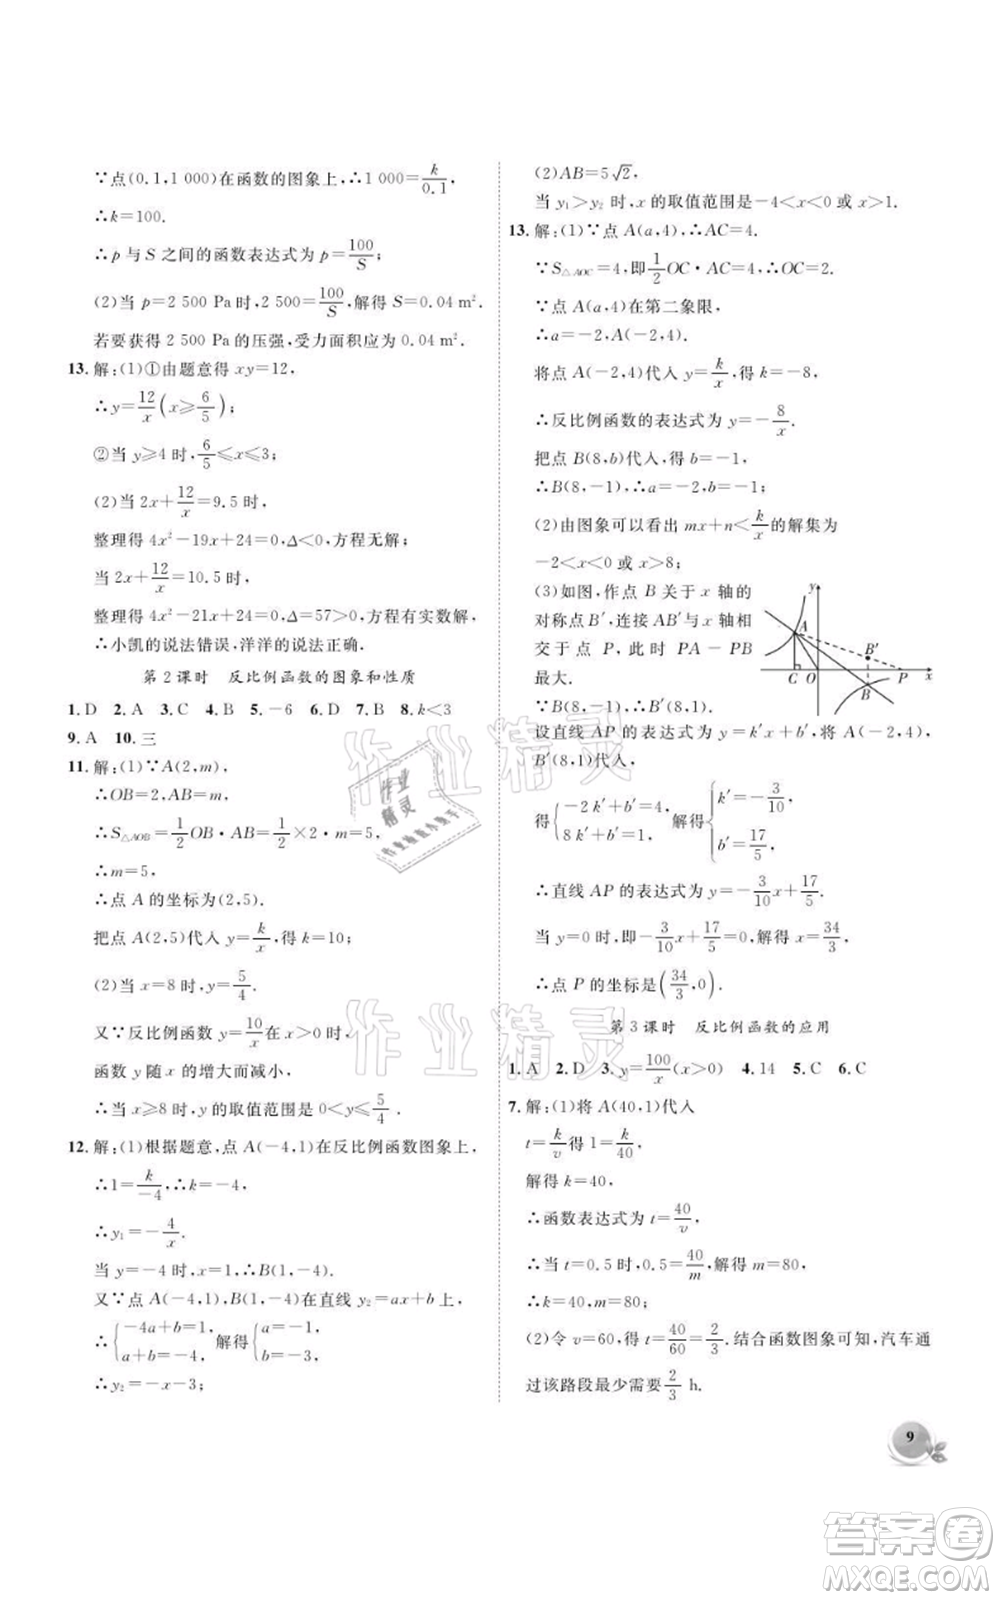 ∵点(0.1,1 000)在函数的图象上,∴1 000=k/0.1,
∴k=100.
∴p与S之间的函数表达式为p=100/S;
(2)当p=2 500 Pa时,2 500=100/S,解得S=0.04 m².
若要获得2 500 Pa的压强,受力面积应为0.04 m².
13.解:(1)①由题意得xy=12,
∴y=12/x(x≥6/5);
②当y≥4时,6/5≤x≤3;
(2)当2x+12/x=9.5时,
整理得4x²-19x+24=0,Δ<0,方程无解;
当2x+12/x=10.5时,
整理得4x²-21x+24=0,Δ=57>0,方程有实数解,
∴小凯的说法错误,洋洋的说法正确.
第2课时 反比例函数的图象和性质
1.D 2.A 3.C 4.B 5.-6 6.D 7.B 8.k<3
9.A 10.三
11.解:(1)∵A(2,m),
∴OB=2,AB=m,
∴S△AOB=1/2OB·AB=1/2×2·m=5,
∴m=5,
∴点A的坐标为(2,5).
把点A(2,5)代入y=k/x,得k=10;
(2)当x=8时,y=5/4.
又∵反比例函数y=10/x在x>0时,
函数y随x的增大而减小,
∴当x≥8时,y的取值范围是0<y≤5/4.
12.解:(1)根据题意,点A(-4,1)在反比例函数图象上,
∴1=k/-4,∴k=-4,
∴y₁=-4/x.
当y=-4时,x=1,∴B(1,-4).
又∵点A(-4,1),B(1,-4)在直线y₂=ax+b上,
∴{-4a+b=1, a+b=-4, 解得{a=-1, b=-3,
∴y₂=-x-3;
(2)AB=5√2,
当y₁>y₂时,x的取值范围是-4<x<0或x>1.
13.解:(1)∵点A(a,4),∴AC=4.
∵S△AOC=4,即1/2OC·AC=4,∴OC=2.
∵点A(a,4)在第二象限,
∴a=-2,A(-2,4).
将点A(-2,4)代入y=k/x,得k=-8,
∴反比例函数的表达式为y=-8/x.
把点B(8,b)代入,得b=-1,
∴B(8,-1),∴a=-2,b=-1;
(2)由图象可以看出mx+n<k/x的解集为
-2<x<0或x>8;
(3)如图,作点B关于x轴的
对称点B′,连接AB′与x轴相
交于点P,此时PA-PB
最大.
y
A
B′
C O P x
B
∵B(8,-1),∴B′(8,1).
设直线AP的表达式为y=k′x+b′,将A(-2,4),
B′(8,1)代入,
得{-2k′+b′=4, 8k′+b′=1, 解得{k′=-3/10, b′=17/5,
∴直线AP的表达式为y=-3/10x+17/5.
当y=0时,即-3/10x+17/5=0,解得x=34/3,
∴点P的坐标是(34/3,0).
第3课时 反比例函数的应用
1.A 2.D 3.y=100/x(x>0) 4.14 5.C 6.C
7.解:(1)将A(40,1)代入
t=k/v得1=k/40,
解得k=40,
∴函数表达式为t=40/v,
∴当t=0.5时,0.5=40/m,解得m=80,
∴k=40,m=80;
(2)令v=60,得t=40/60=2/3.结合函数图象可知,汽车通
过该路段最少需要2/3 h.
9
作业精灵
作业精灵
答案卷
MXQE.COM